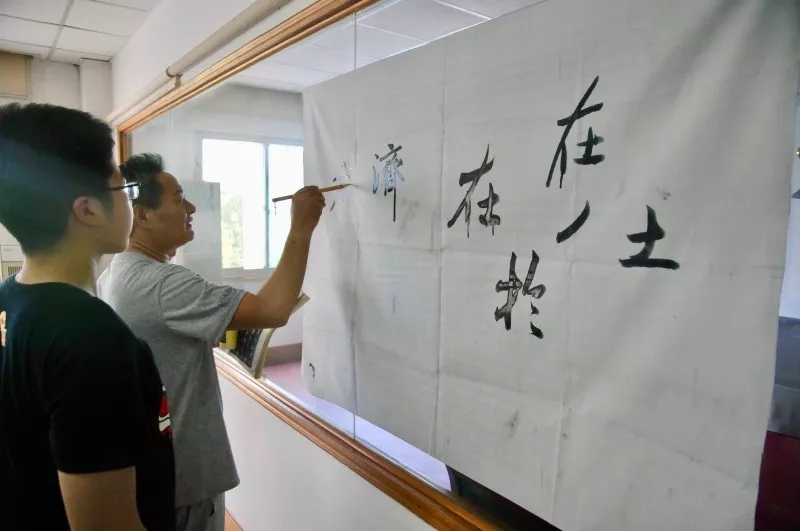 在
土
在
於
濟